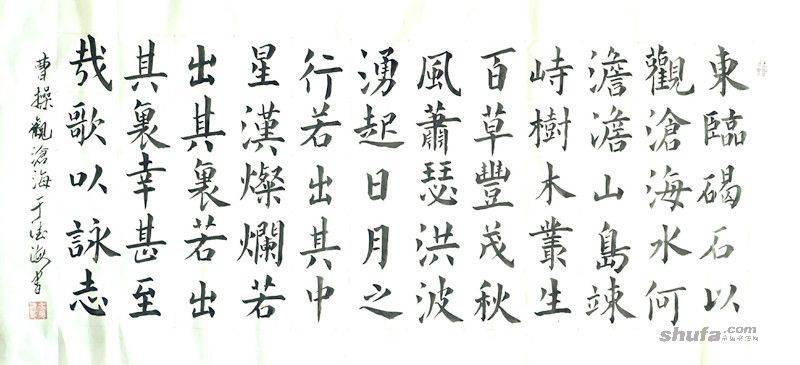 東臨碣石以
觀滄海水何
澹澹山島竦
峙樹木叢生
百草豐茂秋
風蕭瑟洪波
湧起日月之
行若出其中
星漢燦爛若
出其裏若出
其裏幸甚至
哉歌以詠志
曹操觀滄海于海書
shufa.com